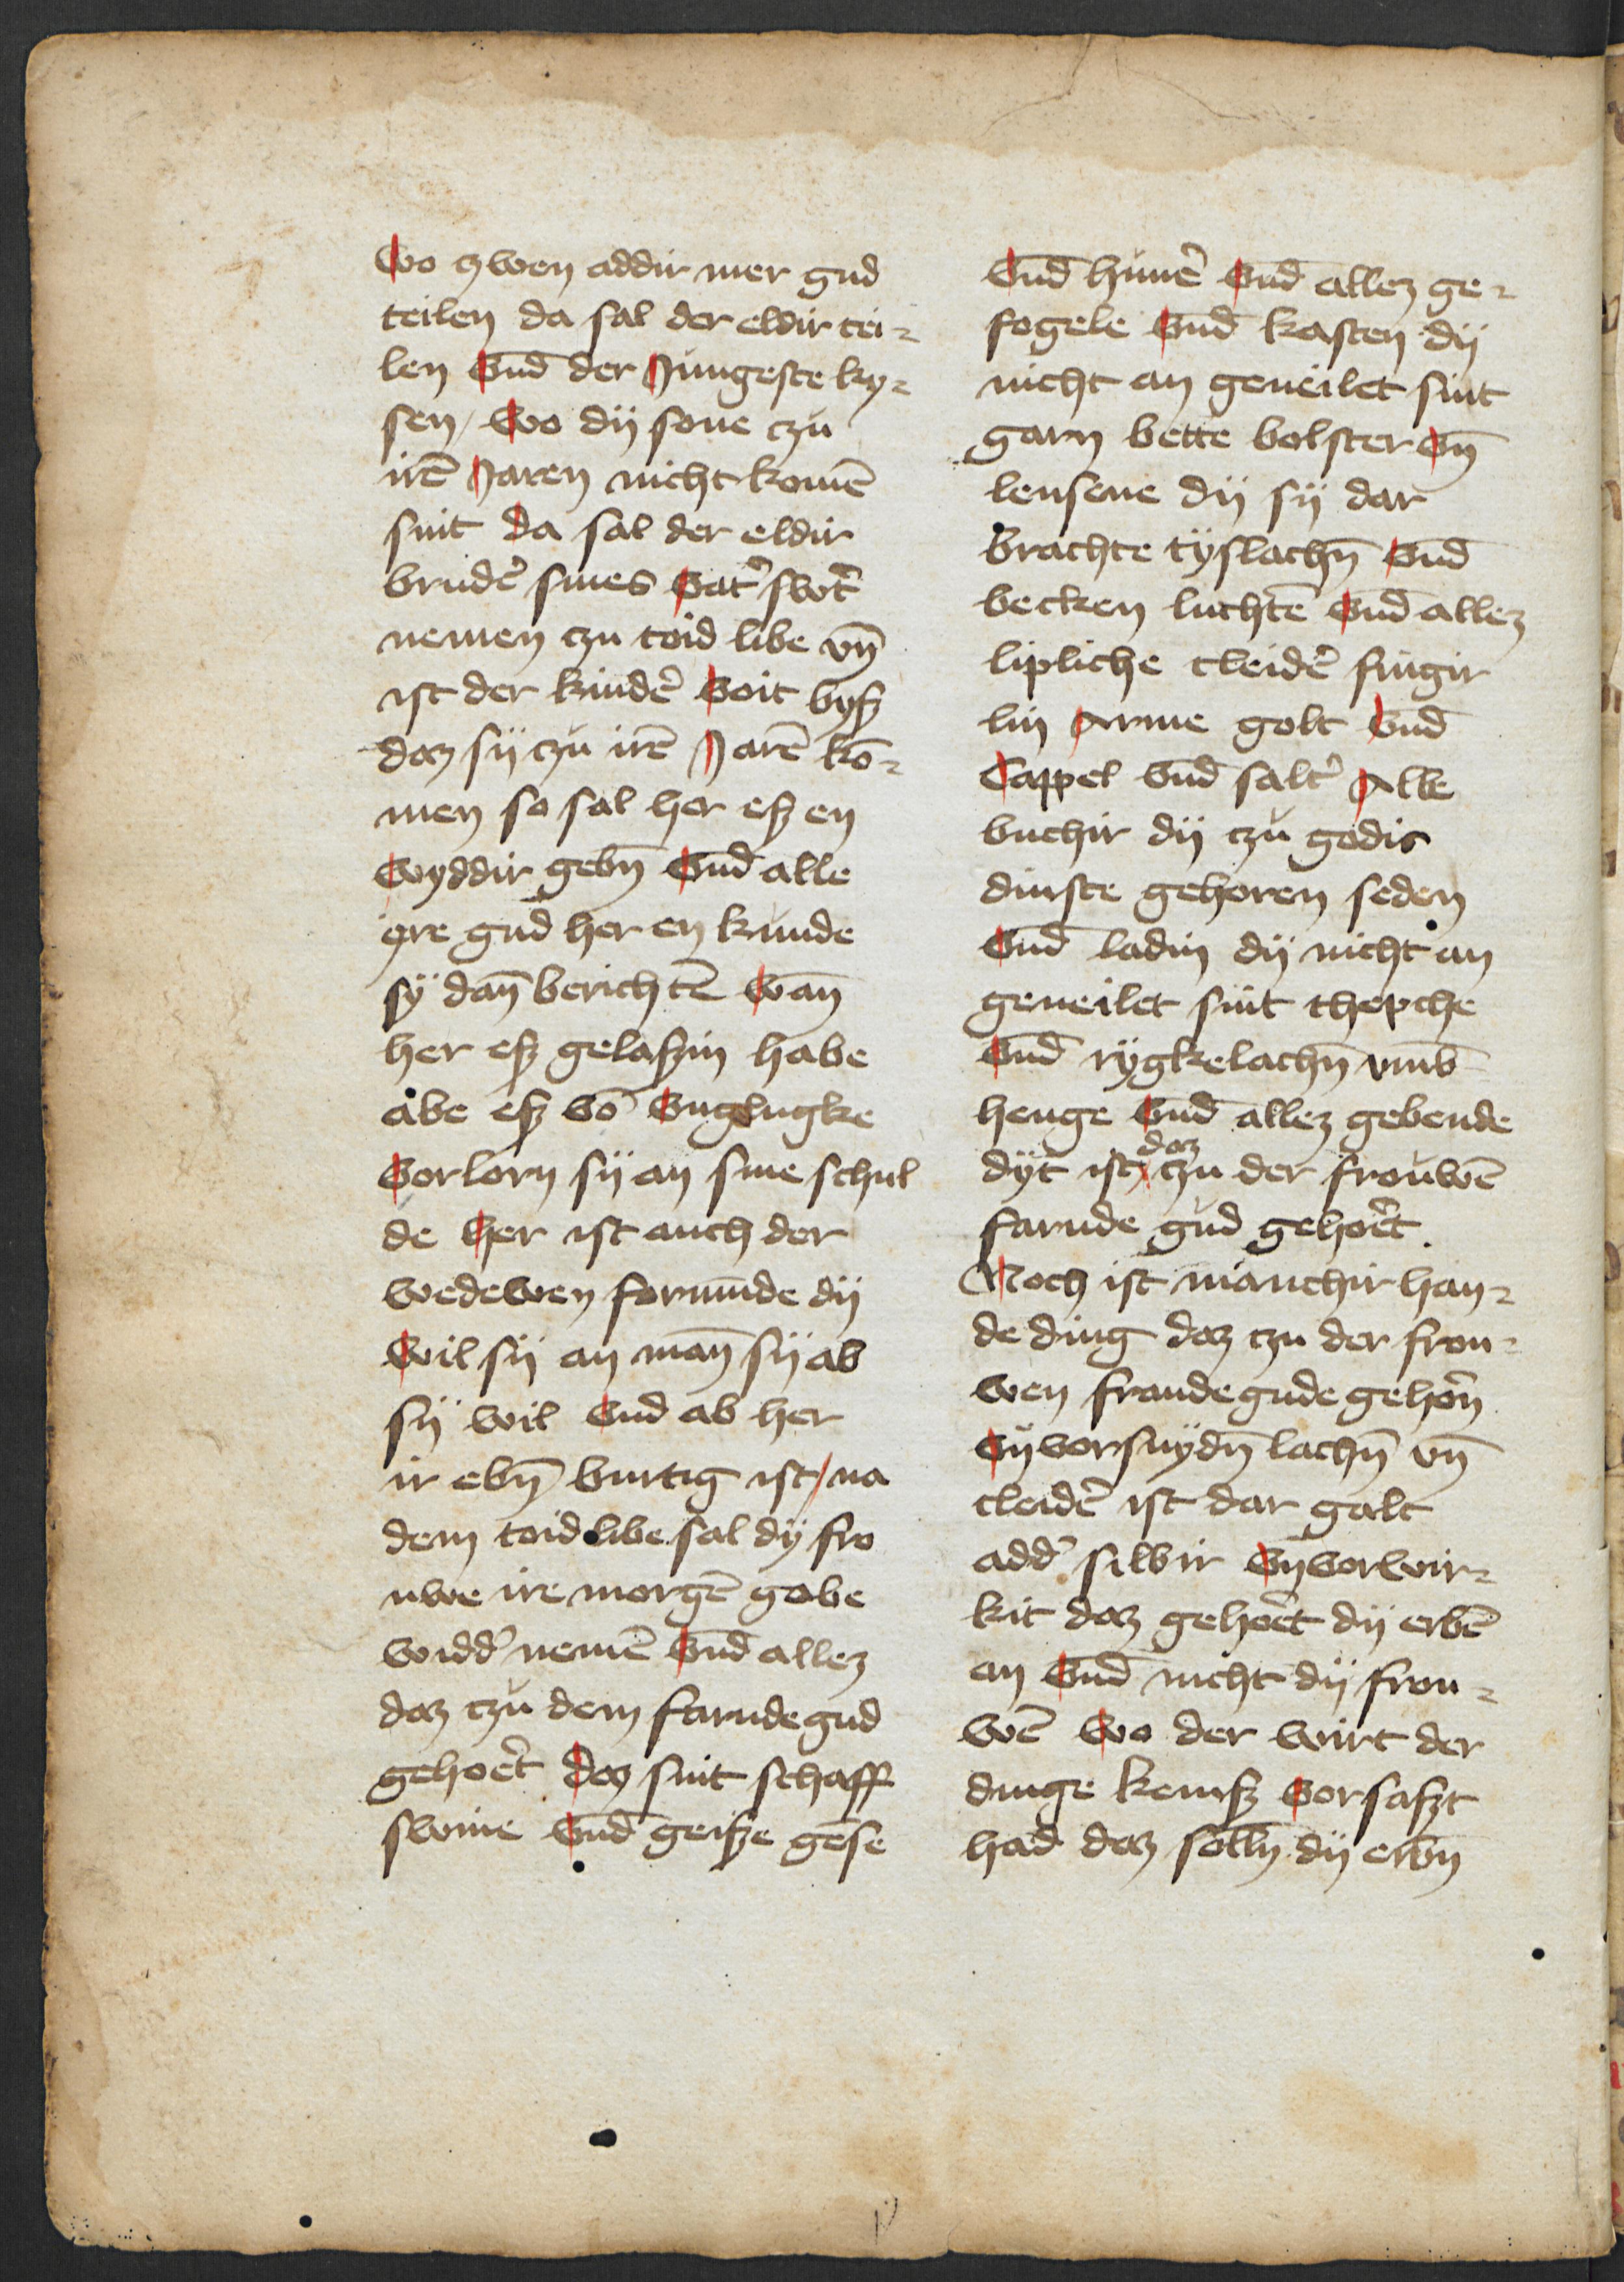 Wo zwen addir mer gud
teilen da sal der eldir tei-
len Vnd̄ der Jungeste ky-
sen / Wo dÿ sone czu
irē Jaren nicht komē
sint da sal der eldir
brudˀ sines Vatˀ swˀt
nemen czu toid libe vn̄
ist der kindˀ Voit bysz
daz sÿ czu irē Jarē kō-
men so sal her esz en
Wyddir gebn̄ Vnd̄ alle
ere gud her en kunde
sÿ dan̄ berichtē Wan̄
her esz gelaszin habe
abe esz vō Vnglugke
Vorlorn sÿ an sine schul
de her ist auch der
wedewen formūde dÿ
Wil sÿ an man̄ sÿ ab
sÿ wil Vnd ab her
ir ebn̄ burtig ist / na
dem toid libe sal dÿ fro
uwe ire morgē gabe
widdˀ nemē Vnd̄ allez
daz czu dem farnde gud
gehorˀt daz sint schaff
swine Vnd̄ geisze gense
Vnd̄ hunˀ Vnd̄ allez ge-
fogele Vnd̄ kasten dÿ
nicht an geneilet sint
garn bette bolster Vn̄
lensene dÿ sÿ dar
brachte tÿslachn̄ Vnd̄
becken luchtē Vnd̄ allez
lipliche cleidˀ fingir
lin Arme golt Vnd̄
Cappel vnd̄ saltˀ Alle
buchir dÿ czu godis
dinste gehoren seden
Vnd̄ ladin dÿ nicht an
geneilet sint thepche
Vnd̄ rÿgkelachn̄ vmb̄
henge Vnd̄ allez gebende
dÿt ist daz czu der frouwē
farnde gud gehorˀt
Noch ist manchir han-
de ding daz czu der frou-
wen frande gude gehorn̄
Vnvorsnydn̄ lachn̄ vn̄
cleidˀ ist dar galt
addˀ silbir Vnvorwir-
kit daz gehorˀt dÿ erbē
an Vnd̄ nicht dÿ frou-
wē Wo der wirt der
dinge keinsz Vorsaszt
had daz solln̄ dÿ erbn̄